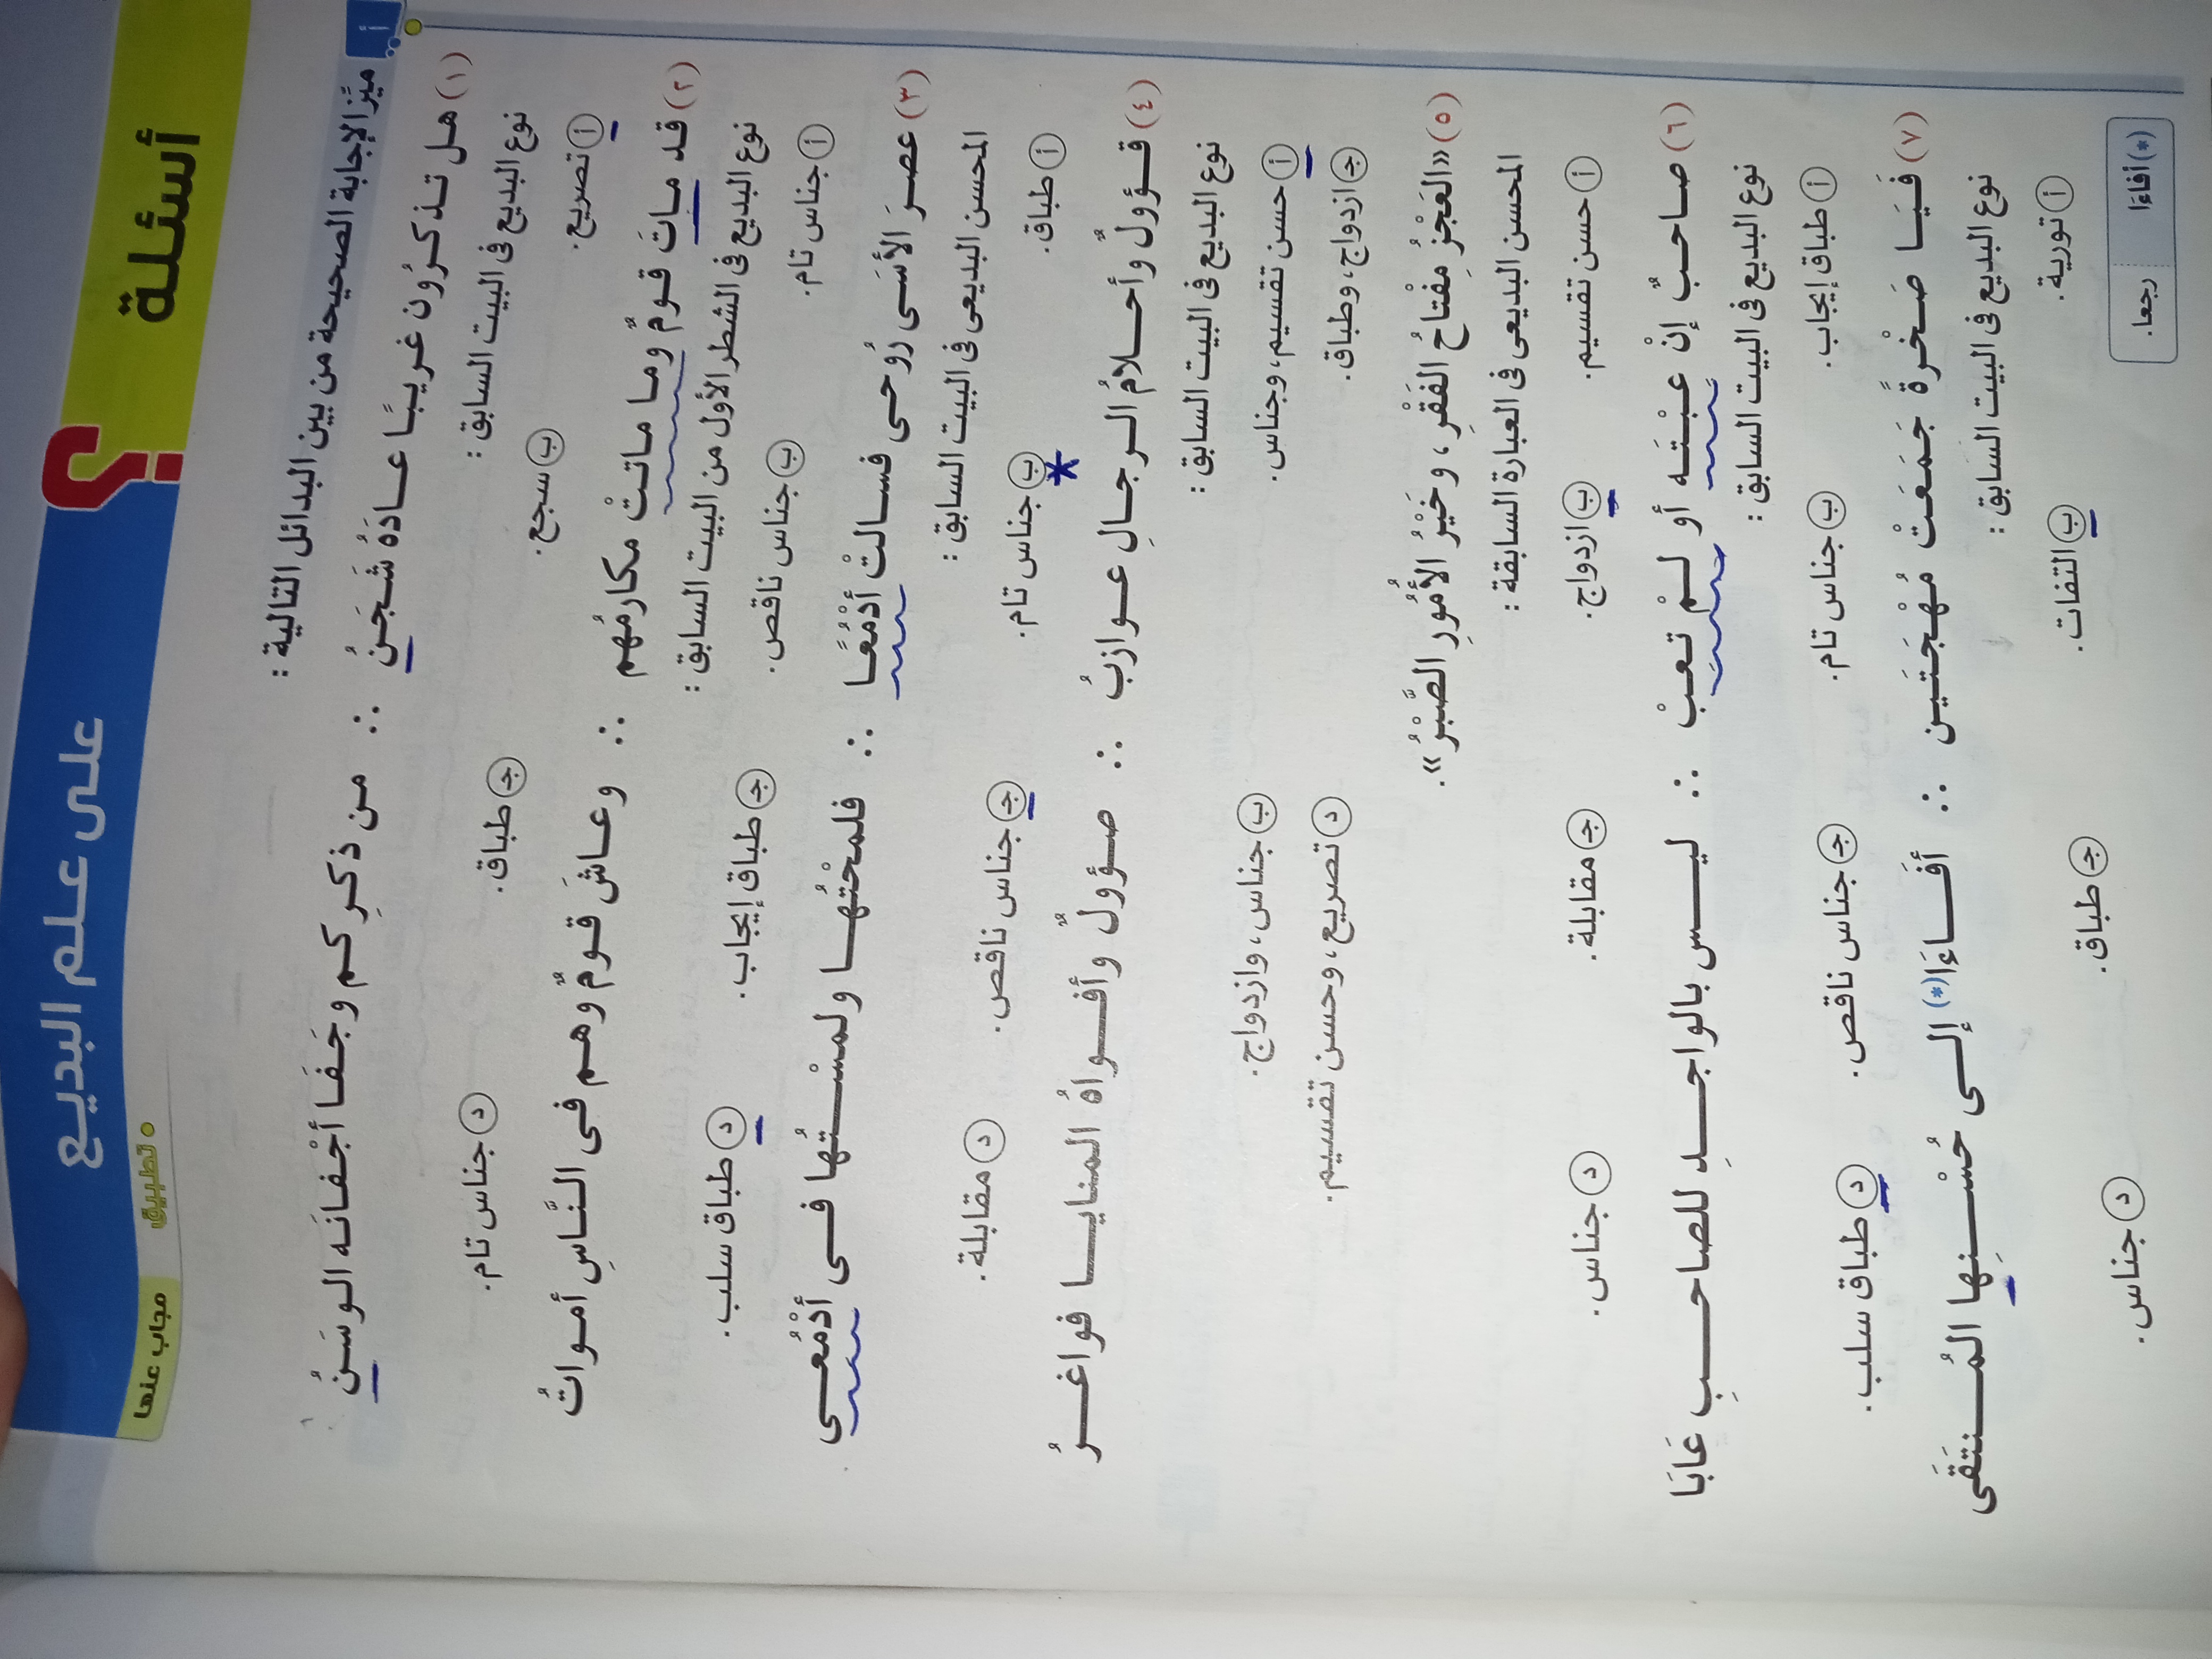 أسئلة
على علم البديع
؟
تطبيق
مجاب عنها
أ ميّز الإجابة الصحيحة من بين البدائل التالية :
(١) هل تذكرُون غريبًا عادَهُ شَجَنُ ∴ من ذكرِكم وجَفَا أجْفانَه الوسَنُ
نوع البديع فى البيت السابق :
أ تصريع. ب سجع. جـ طباق. د جناس تام.
(٢) قد ماتَ قومٌ وما ماتتْ مكارمُهم ∴ وعاشَ قومٌ وهم فى النَّاسِ أمواتُ
نوع البديع فى الشطر الأول من البيت السابق :
أ جناس تام. ب جناس ناقص. جـ طباق إيجاب. د طباق سلب.
(٣) عصرَ الأسَى رُوحى فسالتْ أدْمُعًا ∴ فلمحْتُها ولمسْتُها فى أدْمُعى
المحسن البديعى فى البيت السابق :
أ طباق. ب جناس تام. جـ جناس ناقص. د مقابلة.
(٤) قؤولٌ وأحلامُ الرجالِ عوازبُ ∴ صؤولٌ وأفواهُ المنايا فواغرُ
نوع البديع فى البيت السابق :
أ حسن تقسيم، وجناس. ب جناس، وازدواج.
جـ ازدواج، وطباق. د تصريع، وحسن تقسيم.
(٥) «العَجْزُ مِفْتاحُ الفَقْرِ، وخَيْرُ الأمُورِ الصَّبْرُ».
المحسن البديعى فى العبارة السابقة :
أ حسن تقسيم. ب ازدواج. جـ مقابلة. د جناس.
(٦) صاحبٌ إنْ عبْتَه أو لمْ تعبْ ∴ ليس بالواجدِ للصاحبِ عَابَا
نوع البديع فى البيت السابق :
أ طباق إيجاب. ب جناس تام. جـ جناس ناقص. د طباق سلب.
(٧) فَيَا صَخْرةً جَمَعَتْ مُهْجَتَين ∴ أفَاءَا(*) إلى حُسْنِها المُنتَقَى
نوع البديع فى البيت السابق :
أ تورية. ب التفات. جـ طباق. د جناس.
(*) أفاءَا رجعا.